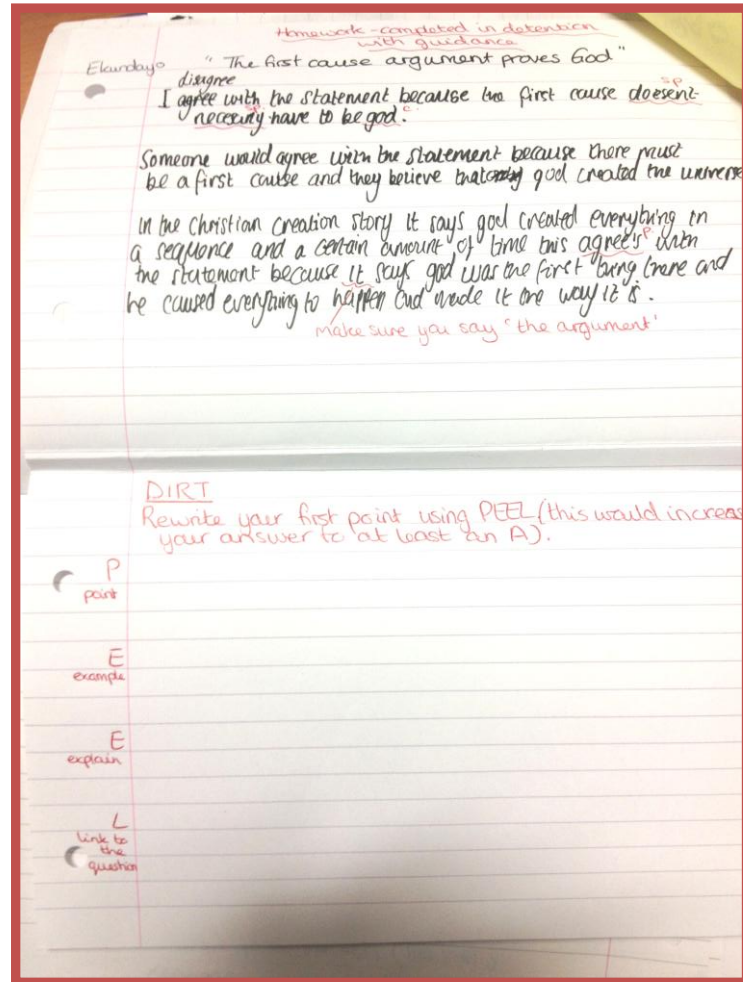 Homework - completed in detention
with guidance
Ekundayo "The first cause argument proves God"
disagree
I agree with the statement because the first cause doesent sp
necesiriy have to be god. c
Someone would agree with the statement because there must
be a first cause and they believe that god created the universe
In the Christian creation story it says god created everything in
a sequence and a certain amount of time this agree's p with
the statement because it says god was the first thing there and
he caused everything to happen and made it the way it is.
make sure you say 'the argument'
DIRT
Rewrite your first point using PEEL (this would increas
your answer to at least an A).
P
point
E
example
E
explain
L
link to
the
question